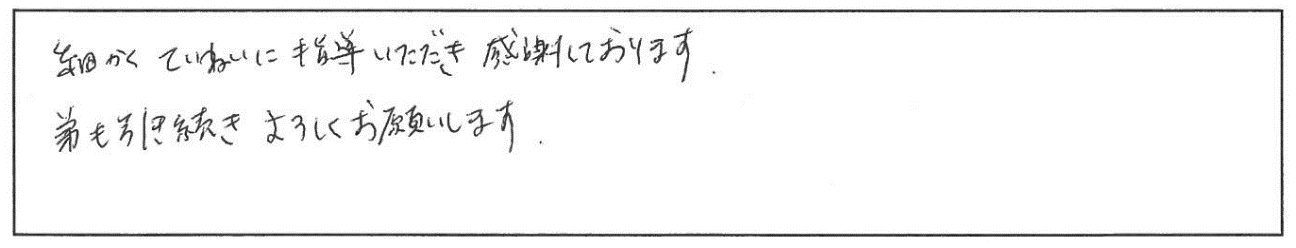 細かくていねいに指導いただき感謝しております.
弟も引き続きよろしくお願いします.